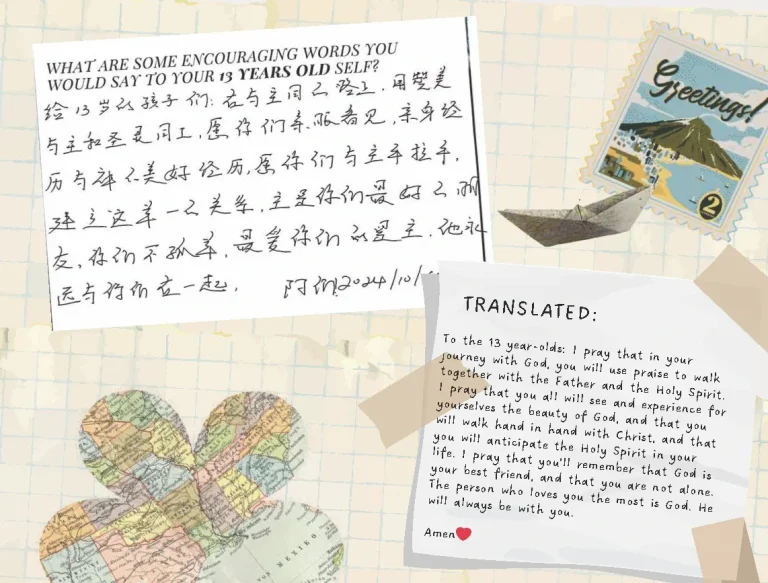 WHAT ARE SOME ENCOURAGING WORDS YOU
WOULD SAY TO YOUR 13 YEARS OLD SELF?
给13岁的孩子们: 在与主同的路上, 用赞美
与主和圣灵同工, 愿你们亲眼看见, 亲身经
历与神的美好经历, 愿你们与主手拉手,
建立这第一的关系, 主是你们最好的朋
友, 你们不孤单, 最爱你们的是主, 他永
远与你们在一起. 阿们 2024/10/
Greetings!
2
TRANSLATED:
To the 13 year-olds: I pray that in your
journey with God, you will use praise to walk
together with the Father and the Holy Spirit.
I pray that you all will see and experience for
yourselves the beauty of God, and that you
will walk hand in hand with Christ, and that
you will anticipate the Holy Spirit in your
life. I pray that you'll remember that God is
your best friend, and that you are not alone.
The person who loves you the most is God. He
will always be with you.
Amen❤️
MEXICO